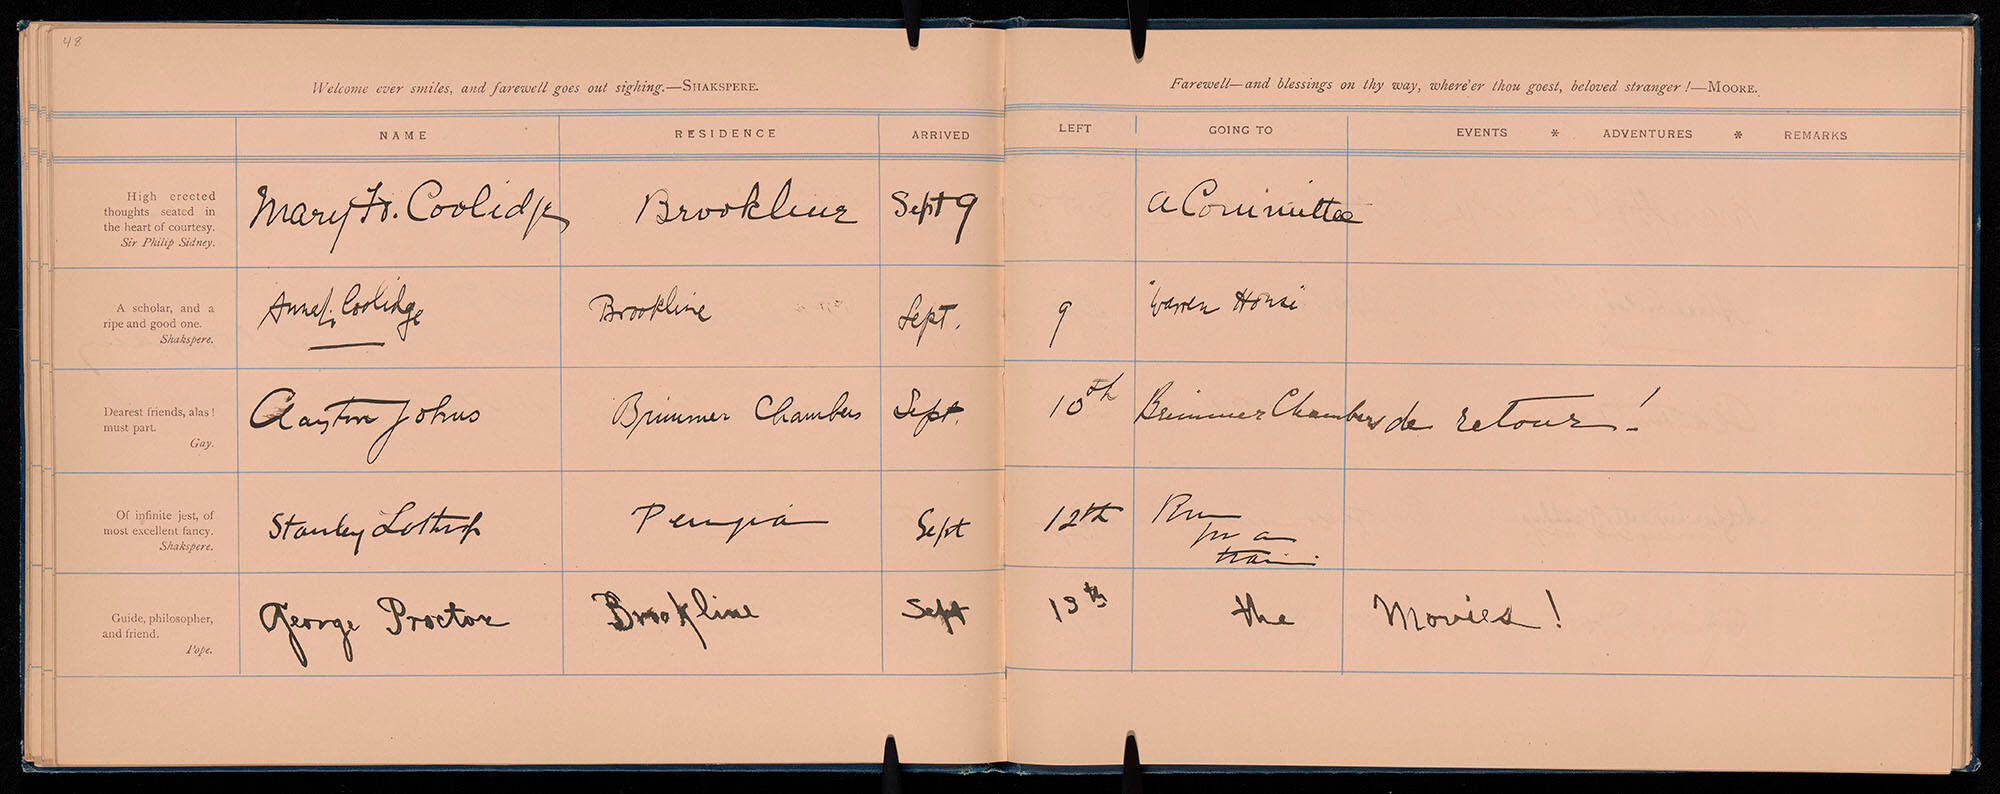 48
Welcome ever smiles, and farewell goes out sighing.—SHAKSPERE.
Farewell—and blessings on thy way, where'er thou goest, beloved stranger!—MOORE.
NAME RESIDENCE ARRIVED LEFT GOING TO EVENTS * ADVENTURES * REMARKS
High erected
thoughts seated in
the heart of courtesy.
Sir Philip Sidney.
Mary H. Coolidge Brookline Sept 9 a Committee
A scholar, and a
ripe and good one.
Shakspere.
Coolidge Brookline Sept. 9 Warren House
Dearest friends, alas!
must part.
Gay.
Clayton Johns Brimmer Chambers Sept. 10th Brimmer Chambers de retour!
Of infinite jest, of
most excellent fancy.
Shakspere.
Stanley Lothrop Perugia Sept 12th Run
for a
train.
Guide, philosopher,
and friend.
Pope.
George Proctor Brookline Sept 13th the Movies!